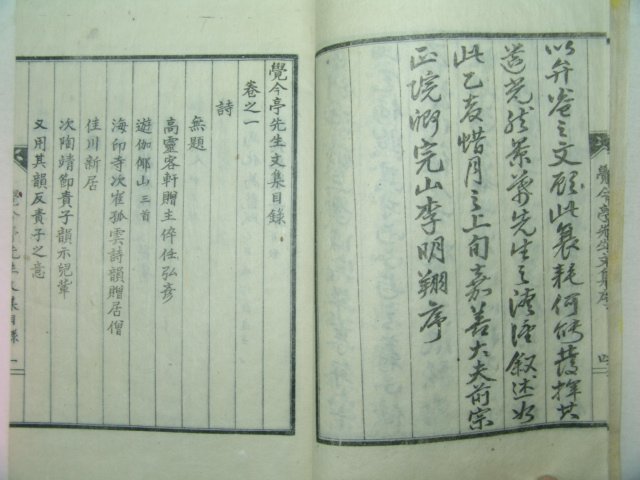 以弁卷之文顧此衰耗何能發揮其
道光然景慕先生之深謹叙述如
此乙亥惜月之上旬嘉善大夫前宗
正院卿完山李明翔序
覺今亭先生文集序
四
覺今亭先生文集目錄
卷之一
詩
無題
高靈客軒贈主倅任弘彦
遊伽倻山 三首
海印寺次崔孤雲詩韻贈居僧
佳川新居
次陶靖節責子韻示兒輩
又用其韻反責子之意
覺今亭先生文集目錄
一